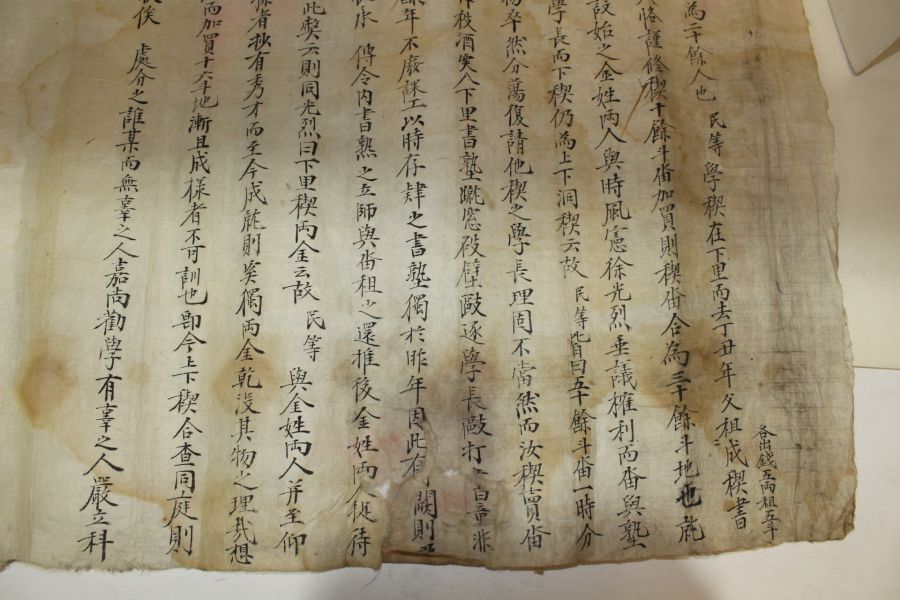 各出錢五兩租五斗
為二十餘人也 民等 學稧在下里而去丁丑年父祖成稧書
恪謹修稧十餘斗畓加買則稧畓合為三十餘斗地也
設始之金姓兩人與時風憲徐光烈垂議權利而畓與塾
學長而下稧仍為上下洞稧云故 民等皆曰五十餘斗畓一時分
卒然分蕩復請他稧之學長理固不當然而汝稧賣畓
秩酒突入下里書塾蹴窓破壁敺逐學長敺打 童非
年不廢課工以時存肄之書塾獨於昨年因此有闕則
傳令內書熟之立師與畓租之還推後金姓兩人 待
此稧云則同光烈曰下里稧兩金云故 民等 與金姓兩人并至仰
樣者抄有秀才而至今成 則奚獨兩金乾沒其物之理哉想
而加買十六斗地漸且成樣者不可訓也卽今上下稧合查同庭則
俟 處分之誰某而無辜之人嘉尙勸學有辜之人嚴立科